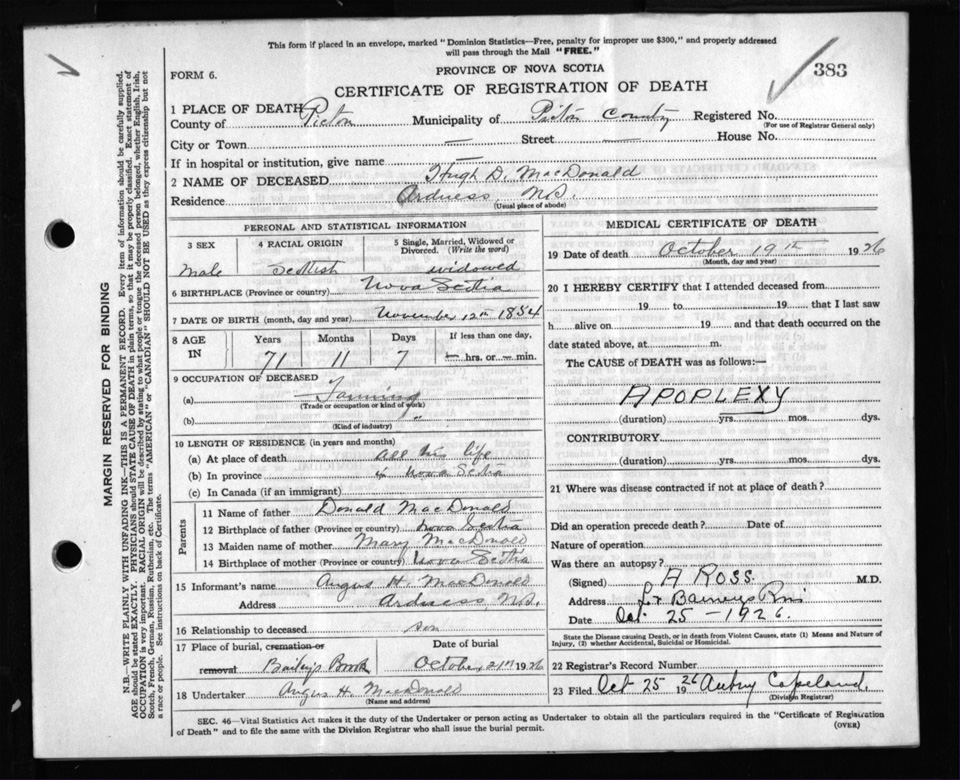 This form if placed in an envelope, marked "Dominion Statistics—Free, penalty for improper use $300," and properly addressed
will pass through the Mail "FREE."
383
FORM 6.
PROVINCE OF NOVA SCOTIA
CERTIFICATE OF REGISTRATION OF DEATH
1 PLACE OF DEATH
County of Pictou Municipality of Pictou County Registered No.
(For use of Registrar General only)
City or Town — Street — House No.
If in hospital or institution, give name —
2 NAME OF DECEASED Hugh D. MacDonald
Residence Ardness, N.S.
(Usual place of abode)
PERSONAL AND STATISTICAL INFORMATION
3 SEX 4 RACIAL ORIGIN 5 Single, Married, Widowed or
Divorced. (Write the word)
Male Scottish widowed
6 BIRTHPLACE (Province or country) Nova Scotia
7 DATE OF BIRTH (month, day and year) November 12th 1854
8 AGE IN Years Months Days If less than one day,
71 11 7 — hrs. or — min.
9 OCCUPATION OF DECEASED
(a) Farming
(Trade or occupation or kind of work)
(b) "
(Kind of industry)
10 LENGTH OF RESIDENCE (in years and months)
(a) At place of death All his life
(b) In province Nova Scotia
(c) In Canada (if an immigrant)
Parents
11 Name of father Donald MacDonald
12 Birthplace of father (Province or country) Nova Scotia
13 Maiden name of mother Mary MacDonald
14 Birthplace of mother (Province or country) Nova Scotia
15 Informant's name Angus H. MacDonald
Address Ardness, N.S.
16 Relationship to deceased son
17 Place of burial, cremation or Date of burial
removal Baileys Brook October, 21st 1926
18 Undertaker Angus H. MacDonald
(Name and address)
MEDICAL CERTIFICATE OF DEATH
19 Date of death October 19th 1926
(Month, day and year)
20 I HEREBY CERTIFY that I attended deceased from
19 to 19 that I last saw
h alive on 19 and that death occurred on the
date stated above, at m.
The CAUSE of DEATH was as follows:—
APOPLEXY
(duration) yrs. mos. dys.
CONTRIBUTORY
(duration) yrs. mos. dys.
21 Where was disease contracted if not at place of death?
Did an operation precede death? Date of
Nature of operation
Was there an autopsy?
(Signed) A Ross. M.D.
Address Barneys
Date Oct 25 — 1926.
State the Disease causing Death, or in death from Violent Causes, state (1) Means and Nature of
Injury, (2) whether Accidental, Suicidal or Homicidal.
22 Registrar's Record Number
23 Filed Oct 25 1926 Aubry Copeland.
(Division Registrar)
SEC. 46—Vital Statistics Act makes it the duty of the Undertaker or person acting as Undertaker to obtain all the particulars required in the "Certificate of Registration
of Death" and to file the same with the Division Registrar who shall issue the burial permit.
(OVER)
MARGIN RESERVED FOR BINDING
N.B.—WRITE PLAINLY WITH UNFADING INK—THIS IS A PERMANENT RECORD. Every item of information should be carefully supplied.
AGE should be stated EXACTLY. PHYSICIANS should STATE CAUSE OF DEATH in plain terms, so that it may be properly classified. Exact statement of
OCCUPATION is very important. RACIAL ORIGIN will be described by stating to what people or tongue the deceased person belonged, whether English, Irish,
Scotch, French, German, Russian, Ruthenian, etc. The terms "AMERICAN" or "CANADIAN" SHOULD NOT BE USED as they express citizenship but not
a race or people. See instructions on back of Certificate.